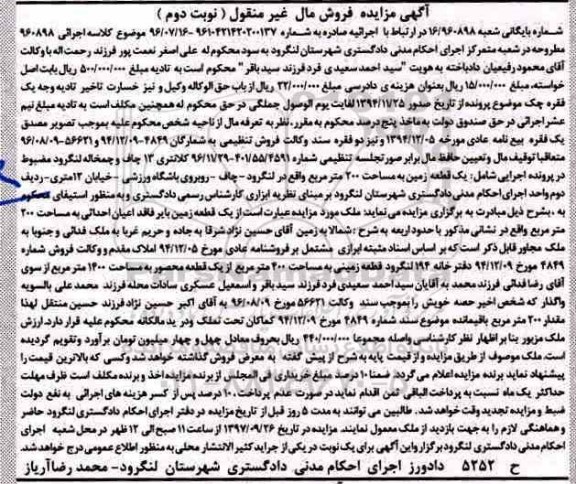 آگهی مزایده فروش مال غیر منقول ( نوبت دوم )
شماره بایگانی شعبه ۱۶/۹۶۰۸۹۸ در ارتباط با اجرائیه صادره به شماره ۹۶۱۰۴۲۱۴۲۰۲۰۰۱۳۷-۹۶/۰۷/۱۶ موضوع کلاسه اجرائی ۹۶۰۸۹۸
مطروحه در شعبه متمرکز اجرای احکام مدنی دادگستری شهرستان لنگرود به سود محکوم له علی اصغر نعمت پور فرزند رحمت اله با وکالت
آقای محمود رفیعیان دادباخته به هویت "سید احمد سعیدی فرد فرزند سید باقر" محکوم است به تادیه مبلغ ۵۰۰/۰۰۰/۰۰۰ ریال بابت اصل
خواسته، مبلغ ۱۵/۰۰۰/۰۰۰ ریال بعنوان هزینه ی دادرسی مبلغ ۲۲/۰۰۰/۰۰۰ ریال از باب حق الوکاله وکیل و نیز خسارت تاخیر تادیه وجه یک
فقره چک موضوع پرونده از تاریخ صدور ۱۳۹۴/۱۱/۲۵ لغایت یوم الوصول جملگی در حق محکوم له همچنین مکلف است به تادیه مبلغ نیم
عشر اجرائی در حق صندوق دولت به ماخذ پنج درصد محکوم به مقرر، نظر به تعرفه مال از ناحیه شخص محکوم علیه به موجب تصویر مصدق
یک فقره بیع نامه عادی مورخه ۱۳۹۴/۱۲/۰۵ و نیز دو فقره سند وکالت فروش تنظیمی به شمارگان ۴۸۴۹-۹۴/۱۲/۰۹ و ۵۶۶۲۱-۹۶/۰۸/۰۹
متعاقبا توقیف مال و تعیین حافظ مال برابر صورتجلسه تنظیمی شماره ۴۰۱/۵۵/۴۵۹۱-۹۶/۱۱/۲۹ کلانتری ۱۳ چاف و چمخاله لنگرود مضبوط
در پرونده اجرایی شامل: یک قطعه زمین به مساحت ۲۰۰ متر مربع واقع در لنگرود - چاف - روبروی باشگاه ورزشی - خیابان ۱۲متری- ردیف
دوم واحد اجرای احکام مدنی دادگستری شهرستان لنگرود بر مبنای نظریه ابزاری کارشناس رسمی دادگستری و به منظور استیفای محکوم
به ، بشرح ذیل مبادرت به برگزاری مزایده می نماید: ملک مورد مزایده عبارت است از یک قطعه زمین بایر فاقد اعیان احداثی به مساحت ۲۰۰
متر مربع واقع در نشانی مذکور با حدود اربعه به شرح : شمالا به زمین آقای حسین نژاد شرقا به جاده و حریم غربا به ملک فدائی و جنوبا به
ملک مجاور قابل ذکر است که بر اساس اسناد مثبته ابرازی مشتمل بر فروشنامه عادی مورخ ۱۳۹۴/۱۲/۰۵ املاک مقدم و وکالت فروش شماره
۴۸۴۹ مورخ ۹۴/۱۲/۰۹ دفتر خانه ۱۹۴ لنگرود قطعه زمینی به مساحت ۲۰۰ متر مربع از یک قطعه محصور به مساحت ۱۴۰۰ متر مربع از سوی
آقای رضا فدائی فرزند محمد به آقایان سید احمد سعیدی فرد فرزند سید باقر و اسمعیل عسکری سادات محله فرزند محمد علی بالسویه
واگذار که شخص اخیر حصه خویش را بموجب سند وکالت ۵۶۶۲۱ مورخ ۹۶/۰۸/۰۹ به آقای اکبر حسین نژاد فرزند حسین منتقل لهذا
مقدار ۲۰۰ متر مربع باقیمانده موضوع سند شماره ۴۸۴۹ مورخ ۹۴/۱۲/۰۹ کماکان تحت تملک و در ید مالکانه محکوم علیه قرار دارد. ارزش
ملک مزبور بنا بر اظهار نظر کارشناسی واصله مجموعا ۴۴۰/۰۰۰/۰۰۰ ریال بحروف معادل چهل و چهار میلیون تومان برآورد و تقویم گردیده
است. ملک موصوف از طریق مزایده و از قیمت پایه به شرح از پیش گفته به معرض فروش گذاشته خواهد شد و کسی که بالاترین قیمت را
پیشنهاد نماید برنده مزایده اعلام می گردد. ضمنا ۱۰ درصد مبلغ خریداری فی المجلس از برنده مزایده اخذ و برنده مکلف است ظرف مهلت
حداکثر یک ماه نسبت به پرداخت الباقی ثمن اقدام نماید در صورت عدم پرداخت، ۱۰ درصد پس از کسر هزینه های اجرائی به نفع دولت
ضبط و مزایده تجدید وقت خواهد شد. طالبین می توانند به مدت ۵ روز قبل از تاریخ مزایده در دفتر اجرای احکام دادگستری لنگرود حاضر
و هماهنگی لازم را به جهت بازدید از ملک معمول نمایند. مزایده در تاریخ ۱۳۹۷/۰۹/۲۶ از ساعت ۱۱ صبح الی ۱۲ ظهر در محل شعبه اجرای
احکام مدنی دادگستری لنگرود برگزار و این آگهی برای یک نوبت در یکی از جراید کثیر الانتشار محلی به منظور اطلاع عمومی درج خواهد شد.
ح ۵۲۵۲ دادورز اجرای احکام مدنی دادگستری شهرستان لنگرود- محمد رضا آریاز